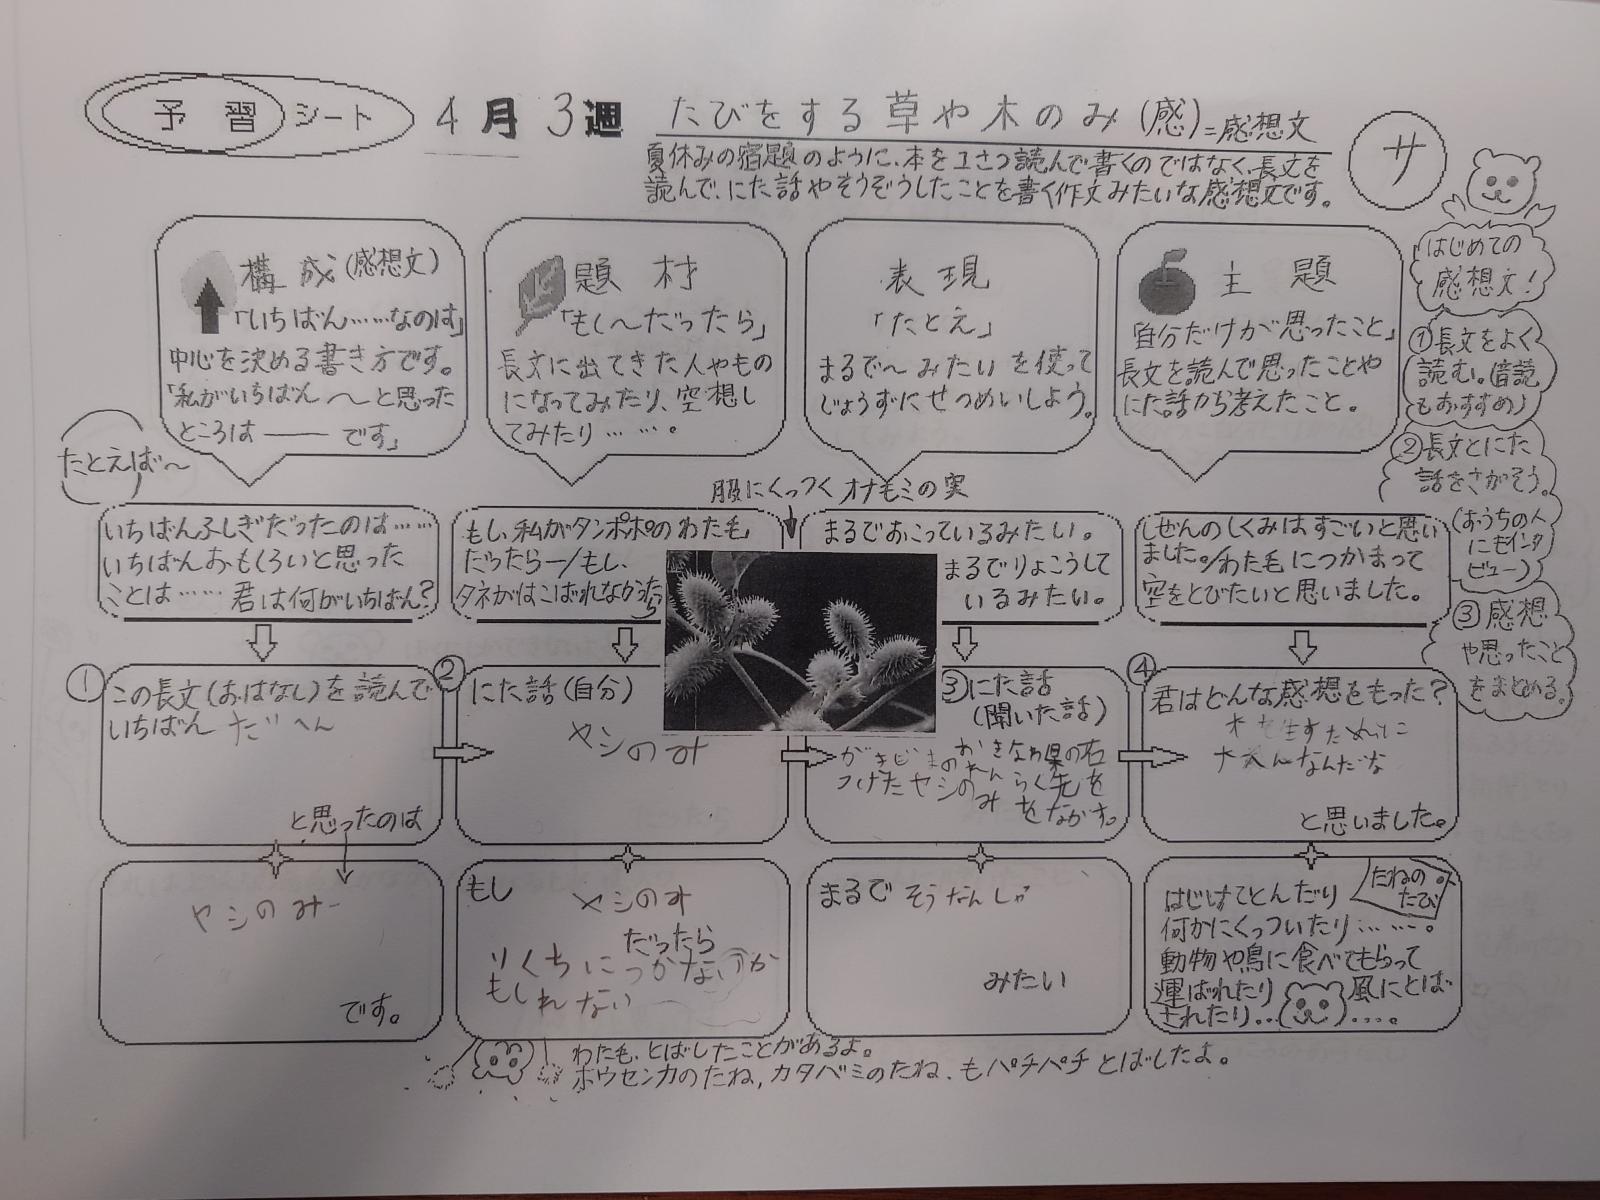 予習シート 4月3週 たびをする草や木のみ(感)=感想文
夏休みの宿題のように、本を1さつ読んで書くのではなく、長文を
読んで、にた話やそうぞうしたことを書く作文みたいな感想文です。
サ
構成(感想文)
「いちばん……なのは」
中心を決める書き方です。
「私がいちばん〜と思った
ところは―― です」
題材
「もし〜だったら」
長文に出てきた人やもの
になってみたり、空想し
てみたり……。
表現
「たとえ」
まるで〜みたいを使って
じょうずにせつめいしよう。
主題
「自分だけが思ったこと」
長文を読んで思ったことや
にた話から考えたこと。
はじめての
感想文!
①長文をよく
読む。(暗読
もおすすめ)
②長文とにた
話をさがそう。
(おうちの人
にもインタ
ビュー)
③感想
や思ったこと
をまとめる。
たとえば〜
いちばんふしぎだったのは……
いちばんおもしろいと思った
ことは…… 君は何がいちばん?
もし、私がタンポポのわた毛
だったら―/もし、
タネがはこばれなかったら
服にくっつくオナモミの実
まるでおこっているみたい。
まるでりょこうして
いるみたい。
しぜんのしくみはすごいと思い
ました。/わた毛につかまって
空をとびたいと思いました。
①この長文(おはなし)を読んで
いちばん だへん
と思ったのは
②にた話(自分)
ヤシのみ
③にた話
(聞いた話)
おきなわ県の石
つけたヤシのみ
れんらく先を
をながす。
④君はどんな感想をもった?
と思いました。
ヤシのみ
です。
もし
ヤシのみ
だったら
りくちにつかない か
もしれない
まるで そうなんしゃ
みたい
たねの
たび
はじけてとんだり
何かにくっついたり……。
動物や鳥に食べてもらって
運ばれたり 風にとば
されたり.. ....。
わたも、とばしたことがあるよ。
ホウセンカのたね、カタバミのたね、もパチパチとばしたよ。